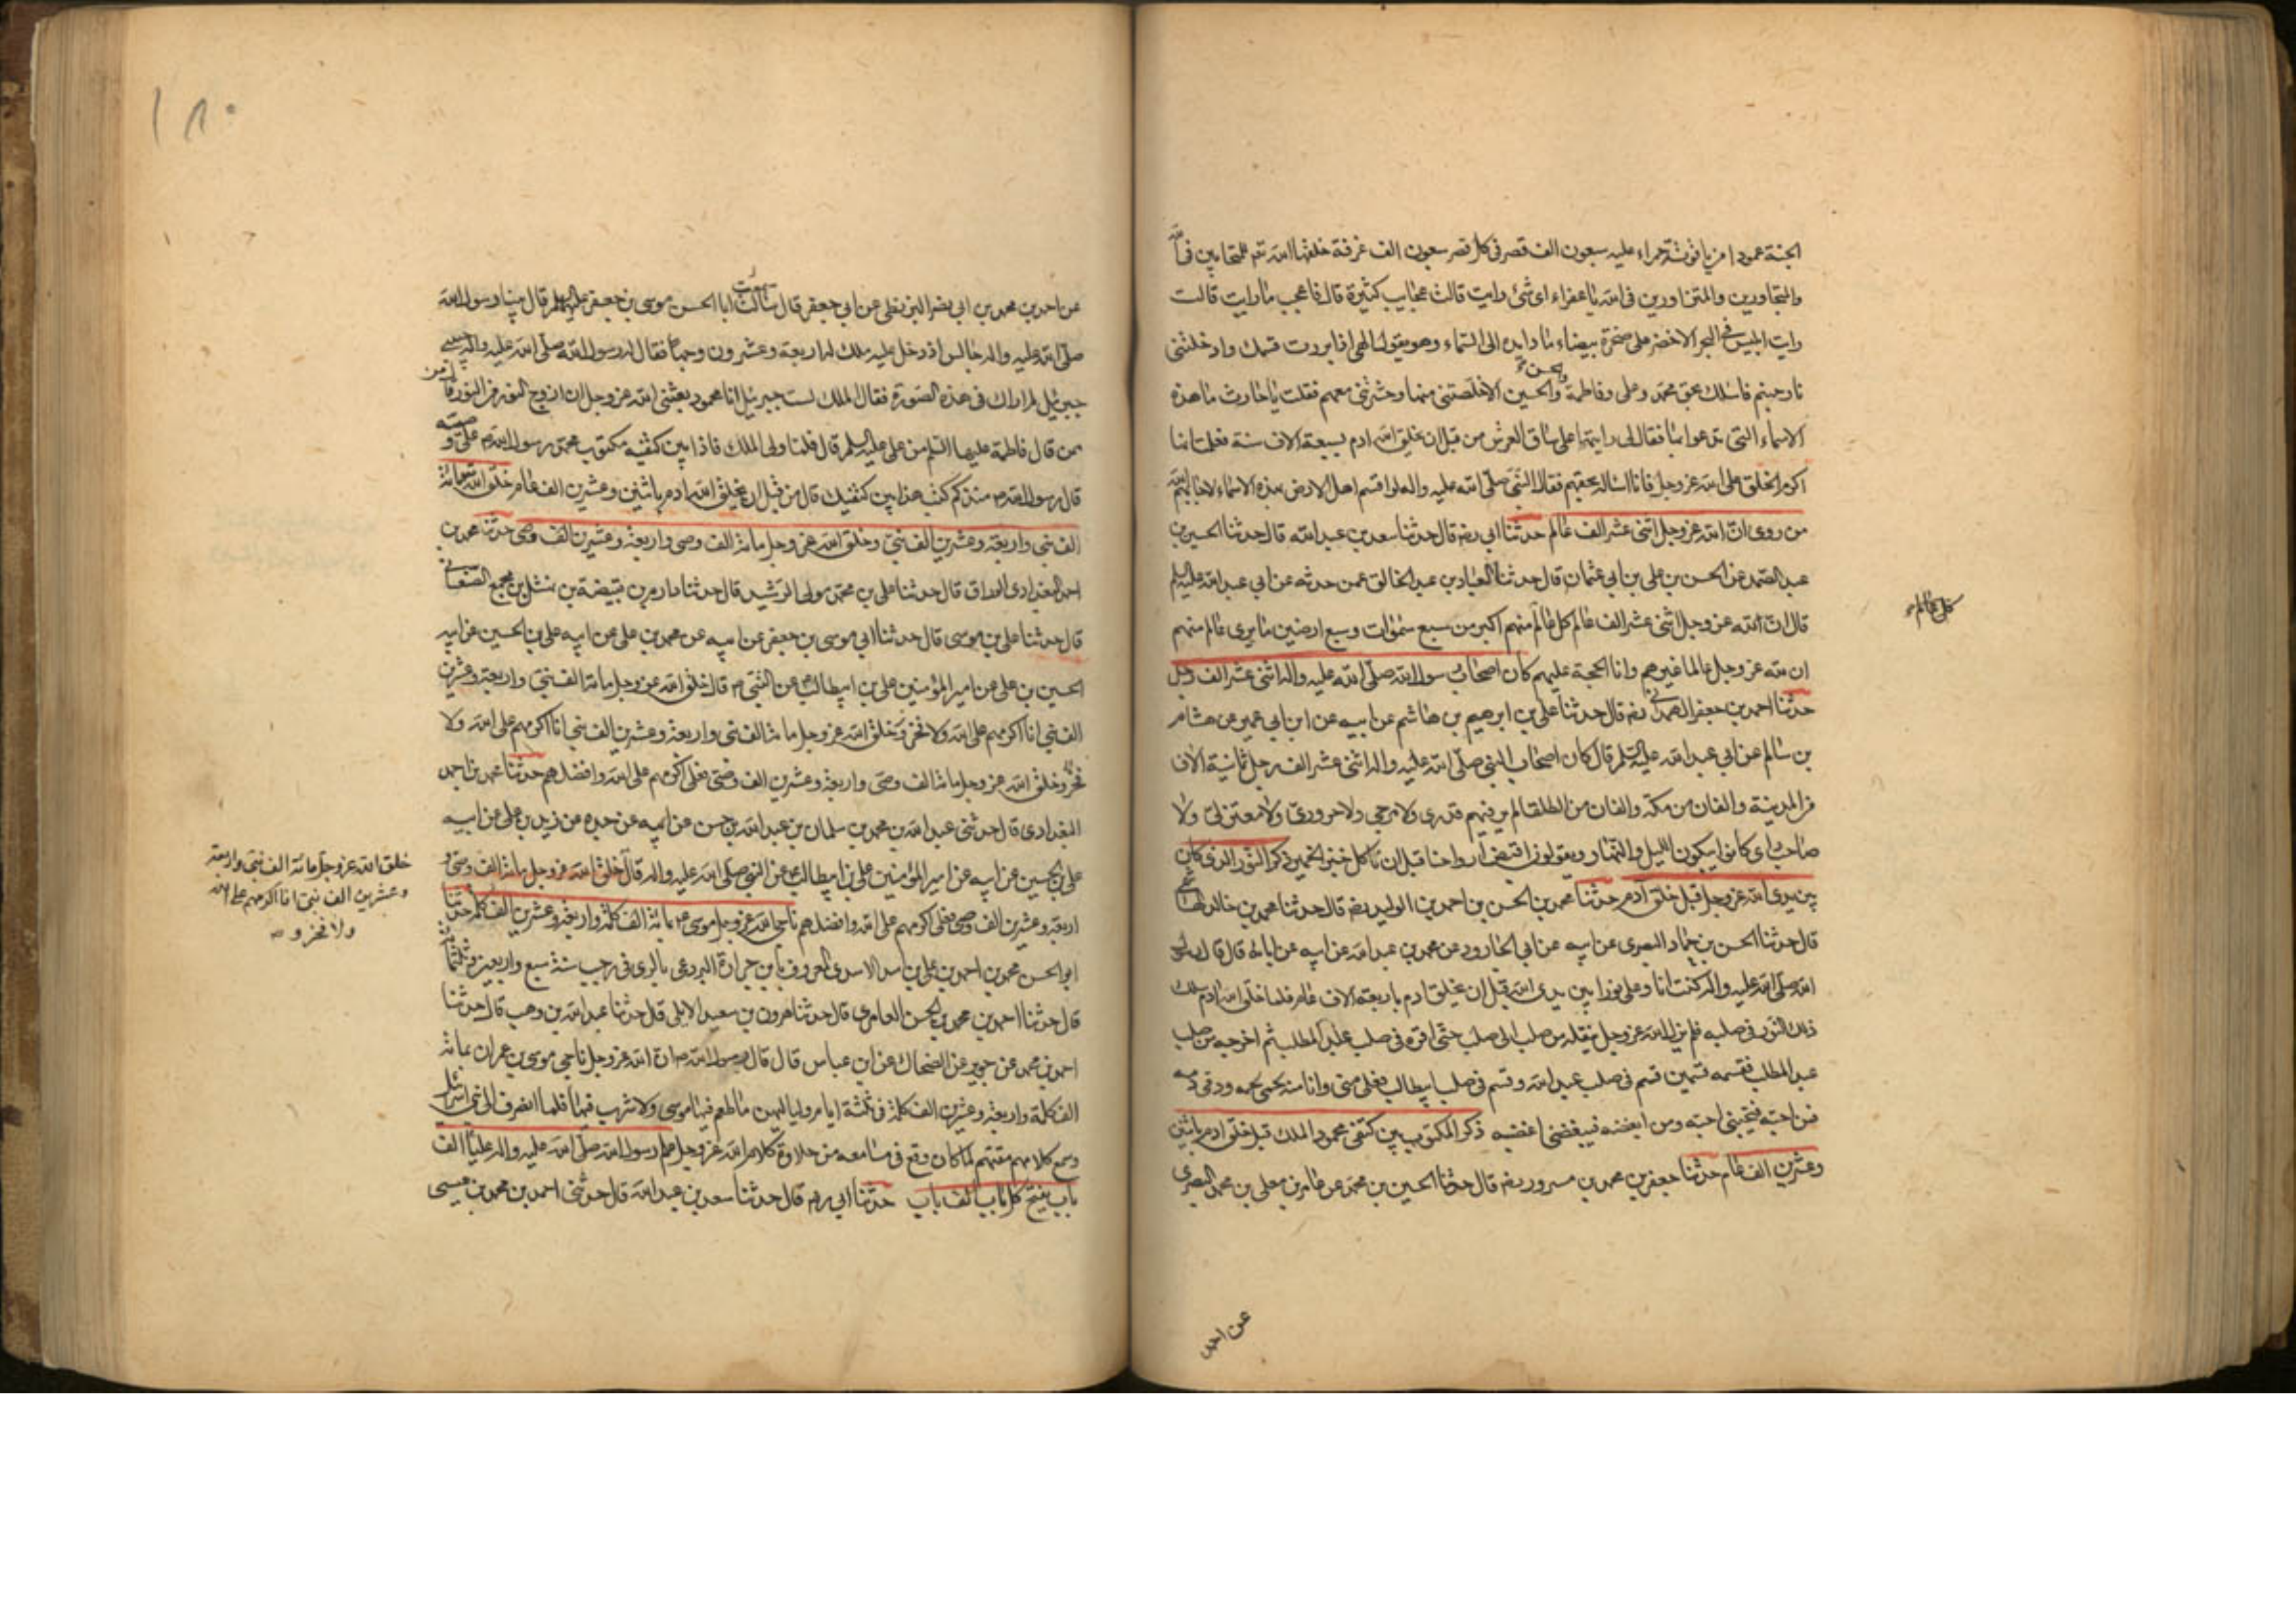 الجنة عمودا من ياقوتة حمراء عليه سبعون الف قصر في كل قصر سبعون الف غرفة خلقها الله تع للمتحابين في الله
والمتجاورين والمتزاورين في الله يا عفراء اى شئ رايت قالت عجايب كثيرة قال فاعجب ما رايت قالت
رايت ابليس في البحر الاخضر على صخرة بيضاء مادا يديه الى السماء وهو يقول الهى اذا بررت قسمك وادخلتنى
نار جهنم فاسئلك بحق محمد وعلى وفاطمة والحسن والحسين الا خلصتنى منها وحشرتنى معهم فقلت يا حارث ما هذه
الاسماء التى تدعوا بها فقال لى رايتها على ساق العرش من قبل ان يخلق الله ادم بسبعة الاف سنة فعلمت انها
اكرم الخلق على الله عز وجل فانا اساله بحقهم فقال النبى صلى الله عليه واله لو اقسم اهل الارض بهذه الاسماء لاجابهم الله
من روى ان لله عز وجل اثنى عشر الف عالم حدثنا ابي رضه قال حدثنا سعد بن عبد الله قال حدثنا الحسين بن
عبد الصمد عن الحسن بن على بن ابي عثمان قال حدثنا العباد بن عبد الخالق عمن حدثه عن ابي عبد الله عليه السلم
قال ان لله عز وجل اثنى عشر الف عالم كل عالم منهم اكبر من سبع سموات وسبع ارضين ما يرى عالم منهم
كل عالم
ان لله عز وجل عالما غيرهم وانا الحجة عليهم كان اصحاب رسول الله صلى الله عليه واله اثنى عشر الف رجل
حدثنا احمد بن جعفر الهمدانى رضه قال حدثنا على بن ابرهيم بن هاشم عن ابيه عن ابن ابي عمير عن هشام
بن سالم عن ابي عبد الله عليه السلم قال كان اصحاب النبى صلى الله عليه واله اثنى عشر الف رجل ثمانية الاف
من المدينة والفان من مكة والفان من الطلقا لم ير فيهم قدرى ولا مرجى ولا حرورى ولا معتزلى ولا
صاحب راى كانوا يبكون الليل والنهار ويقولون اقبض ارواحنا قبل ان ناكل خبز الخمير ذكر النور الذى كان
بين يدى الله عز وجل قبل خلق آدم حدثنا محمد بن الحسن بن احمد بن الوليد رضه قال حدثنا محمد بن خالد الهاشمى
قال حدثنا الحسن بن حماد البصرى عن ابيه عن ابي الجارود عن محمد بن عبد الله عن ابيه عن ابائه قال قال رسول
الله صلى الله عليه واله كنت انا وعلى نورا بين يدى الله قبل ان يخلق ادم باربعة الاف عام فلما خلق الله ادم سلك
ذلك النور في صلبه فلم يزل الله عز وجل ينقله من صلب الى صلب حتى اقره في صلب عبد المطلب ثم اخرجه من صلب
عبد المطلب فقسمه قسمين قسم في صلب عبد الله وقسم في صلب ابيطالب فعلى منى وانا منه لحمه لحمى ودمه دمى
فمن احبه فبحبى احبه ومن ابغضه فببغضى ابغضه ذكر المكتوب بين كتفى محمود الملك قبل خلق ادم باثنين
وعشرين الف عام حدثنا جعفر بن محمد بن مسرور رضه قال حدثنا الحسين بن محمد عن عامر بن معلى بن محمد البصرى
عن احمد
١٨٠
عن احمد بن محمد بن ابي نصر البزنطى عن ابي جعفر قال سالت ابا الحسن موسى بن جعفر عليهما السلم قال بينا رسول الله
صلى الله عليه واله جالس اذ دخل عليه ملك له اربعة وعشرون وجها فقال له رسول الله صلى الله عليه واله حبيبى
جبرئيل لم ارك في هذه الصورة فقال الملك لست جبرئيل انا محمود بعثنى الله عز وجل ان ازوج النور من النور قال من
ممن قال فاطمة عليها السلم من على عليه السلم قال فلما ولى الملك فاذا بين كتفيه مكتوب محمد رسول الله على وصيه
قال رسول الله ص منذ كم كتب هذا بين كتفيك قال من قبل ان يخلق الله ادم باثنين وعشرين الف عام خلق الله مائة
الف نبى واربعة وعشرين الف نبى وخلق الله عز وجل مائة الف وصى واربعة وعشرين الف وصى حدثنا محمد بن
احمد البغدادى الوراق قال حدثنا على بن محمد مولى الرشيد قال حدثنا دارم بن قبيضة بن نهشل بن مجمع الصنعانى
قال حدثنا على بن موسى قال حدثنا ابي موسى بن جعفر عن ابيه عن محمد بن على عن ابيه على بن الحسين عن ابيه
الحسين بن على عن امير المؤمنين على بن ابيطالب عن النبى ص قال خلق الله عز وجل مائة الف نبى واربعة وعشرين
الف نبى انا اكرمهم على الله ولا فخر وخلق الله عز وجل مائة الف نبى واربعة وعشرين الف نبى انا اكرمهم على الله ولا
فخر وخلق الله عز وجل مائة الف وصى واربعة وعشرين الف وصى فعلى اكرمهم على الله وافضلهم حدثنا محمد بن احمد
البغدادى قال حدثنى عبد الله بن محمد بن سلمان بن عبد الله بن حسن عن ابيه عن جده عن زيد بن على عن ابيه
على بن الحسين عن ابيه عن امير المؤمنين على بن ابيطالب عن النبى صلى الله عليه واله قال خلق الله عز وجل مائة الف وصى و
خلق الله عز وجل مائة الف نبى واربعة
وعشرين الف نبى انا اكرمهم على الله
ولا فخر و
اربعة وعشرين الف وصى فعلى اكرمهم على الله وافضلهم ناجى الله عز وجل موسى بمائة الف كلمة واربعة وعشرين الف كلمة حدثنا
ابو الحسن محمد بن احمد بن على بن اسد الاسدى المعروف بابن جرادة البردعى بالرى في رجب سنة سبع واربعين وثلثمائة
قال حدثنا احمد بن محمد بن الحسن العامرى قال حدثنا هرون بن سعيد الايلى قال حدثنا عبد الله بن وهب قال حدثنا
احمد بن محمد عن جوير عن الضحاك عن ابن عباس قال قال رسول الله ص ان الله عز وجل ناجى موسى بن عمران بمائة
الف كلمة واربعة وعشرين الف كلمة في ثلثة ايام ولياليهن ما طعم فيها موسى ولا شرب فيها فلما انصرف الى بنى اسرائيل
وسمع كلامهم مقتهم لما كان وقع في مسامعه من حلاوة كلام الله عز وجل علم رسول الله صلى الله عليه واله عليا الف
باب يفتح كل باب الف باب حدثنا ابي رضه قال حدثنا سعد بن عبد الله قال حدثنى احمد بن محمد بن عيسى